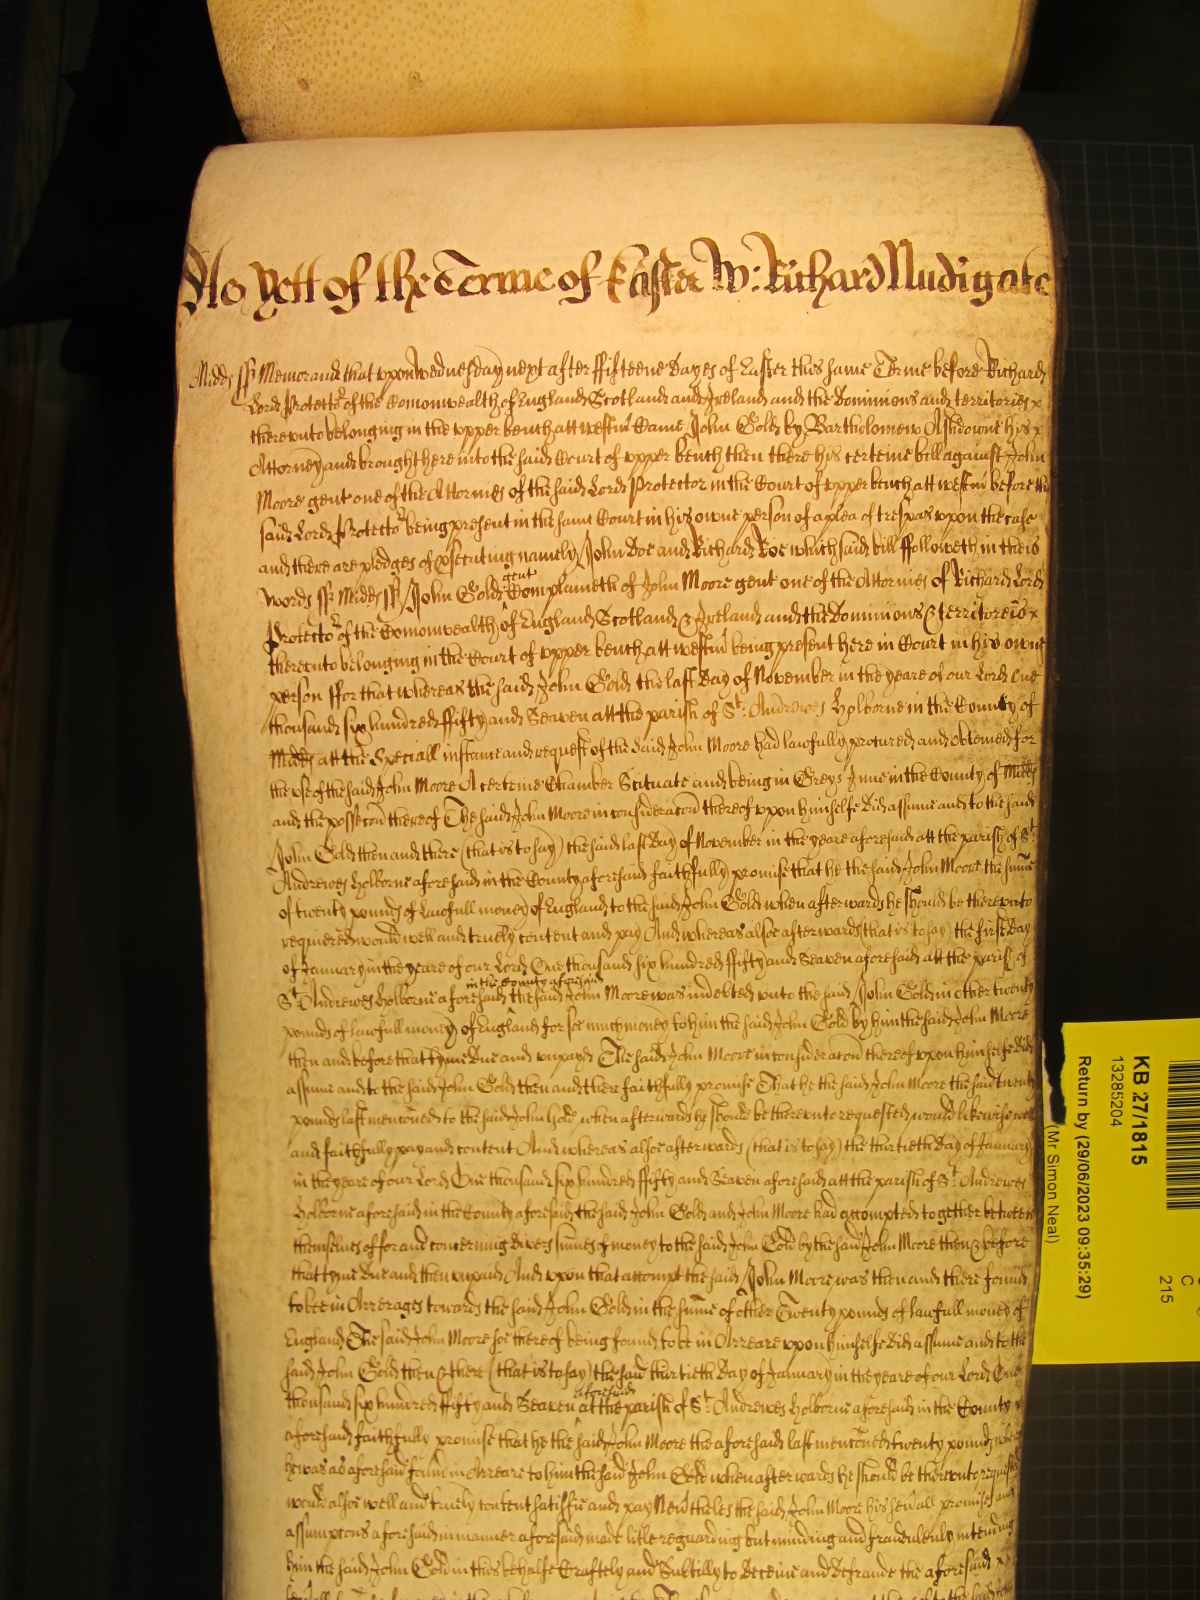 As Yett of the Terme of Easter W: Richard Nudigate
Midds ss Memorand that upon Wednesday next after ffifteene dayes of Easter this same Terme before Richard
Lord Protector of the Comonwealth of England Scotland and Ireland and the dominions and territories
thereunto belonging in the upper bench att Westm Came John Gold by Bartholomew Ashdowne his
Attorney and brought here into the said Court of upper bench then there his certeine bill against John
Moore gent one of the Attornies of the said Lord Protector in the Court of upper bench att westm before the
said Lord Protector being present in the same Court in his owne person of a plea of trespas upon the case
and there are pledges of prsecuting namely John Doe and Richard Roe which said bill ffolloweth in theis
words ss Midds ss John Gold gent Complaineth of John Moore gent one of the Attornies of Richard Lord
Protector of the Comonwealth of England Scotland & Ireland and the Dominions & territories
thereunto belonging in the Court of upper bench att westm being present here in Court in his owne
person ffor that whereas the said John Gold the last day of November in the yeare of our Lord One
thousand six hundred ffifty and Seaven att the parish of St. Andrewes Holborne in the County of
Midds att the Speciall instance and request of the said John Moore had lawfully procured and obteined for
the use of the said John Moore A certeine Chamber Scituate and being in Greys Inne in the County of Midds
and the possecon thereof The said John Moore in consideracon thereof upon himselfe did assume and to the said
John Gold then and there (that is to say) the said last day of November in the yeare aforesaid att the parish of St.
Andrewes Holborne aforesaid in the County aforesaid faithfully promise that he the said John Moore the sume
of twenty pounds of lawfull money of England to the said John Gold when afterwards he should be thereunto
requiered would well and truely content and pay And whereas alsoe afterwards (that is to say) the first day
of January in the yeare of our Lord One thousand six hundred ffifty and Seaven aforesaid att the parish of
St. Andrewes Holborne aforesaid in the County aforesaid the said John Moore was indebted unto the said John Gold in other twenty
pounds of lawfull money of England for soe much money to him the said John Gold by him the said John Moore
then and before that tyme due and unpayd The said John Moore in consideracon thereof upon himselfe did
assume and to the said John Gold then and there faithfully promise That he the said John Moore the said twenty
pounds last menconed to the said John Gold when afterwards he should be thereunto requested would likewise well
and faithfully pay and content And whereas alsoe afterwards (that is to say) the thirtieth day of January
in the yeare of our Lord One thousand six hundred ffifty and Seaven aforesaid att the parish of St. Andrewes
Holborne aforesaid in the County aforesaid the said John Gold and John Moore had accompted together between
themselves of for and concerning divers sumes of money to the said John Gold by the said John Moore then & before
that tyme due and then unpaid And upon that accompt the said John Moore was then and there found
to bee in Arrerages towards the said John Gold in the sume of other Twenty pounds of lawfull money of
England The said John Moore soe thereof being found to be in Arreare upon himselfe did assume and to the
said John Gold then & there (that is to say) the said thirtieth day of January in the yeare of our Lord One
thousand six hundred ffifty and Seaven aforesaid att the parish of St. Andrewes Holborne aforesaid in the County
aforesaid faithfully promise that he the said John Moore the aforesaid last menconed twenty pounds
he was as aforesaid found in Arreare to him the said John Gold when afterwards he should be thereunto requested
would alsoe well and truely content satisfie and pay Nevrtheles the said John Moore his sevrall promises and
assumptons aforesaid in manner aforesaid made litle reguarding but minding and fraudulently intending
him the said John Gold in this behalfe Craftely and Subtilly to deceive and defraude the aforesaid
KB 27/1815
13285204
Return by (29/06/2023 09:35:29)
(Mr Simon Neal)
C
215